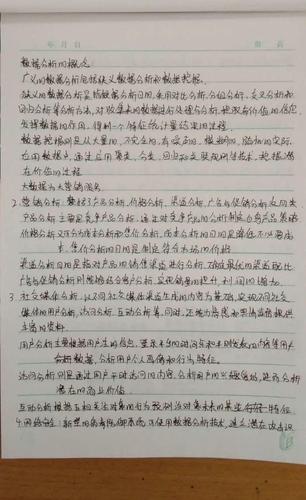 年 月 日
数据分析的概念
广义的数据分析包括狭义数据分析和数据挖掘.
狭义的数据分析是指根据分析目的,采用对比分析、分组分析、交叉分析和
回归分析等分析方法,对收集来的数据进行处理与分析,提取有价值的信息,
发挥数据的作用,得到一个特征统计量结果的过程
数据挖掘则是从大量的、不完全的、有噪声的、模糊的、随机的实际
应用数据中,通过应用聚类、分类、回归和关联规则等技术,挖掘潜
在价值的过程
大数据与大营销服务
2. 营销分析:囊括了产品分析,价格分析,渠道分析,广告与促销分析
产品分析主要是竞争产品分析,通过对竞争产品的分析制定自身产品策略
价格分析又可分为成本分析和售价分析,成本分析的目的是降低不必要成
本,售价分析的目的是制定符合市场的价格
渠道分析目的是指对产品的销售渠道进行分析,确定最优的渠道配比
广告与促销分析则能够结合客户分析,实现销量的提升,利润的增加
3. 社交媒体分析:以不同社交媒体渠道生成的内容为基础,实现不同社交
媒体的用户分析,访问分析,互动分析等.同时,还能为舆情监督提供
丰富的资料
用户分析主要根据用户注册信息,登录平台的时间点和平时发表的内容等用户
数据,分析用户个人画像和行为特征
访问分析则是通过用户平时访问的内容,分析用户的兴趣爱好,进而分析
潜在的商业价值.
互动分析根据互相关注对象的行为预测该对象未来的某些行为特征
4. 网络安全:新型的病毒防御系统可使用数据分析技术,建立潜在攻击识